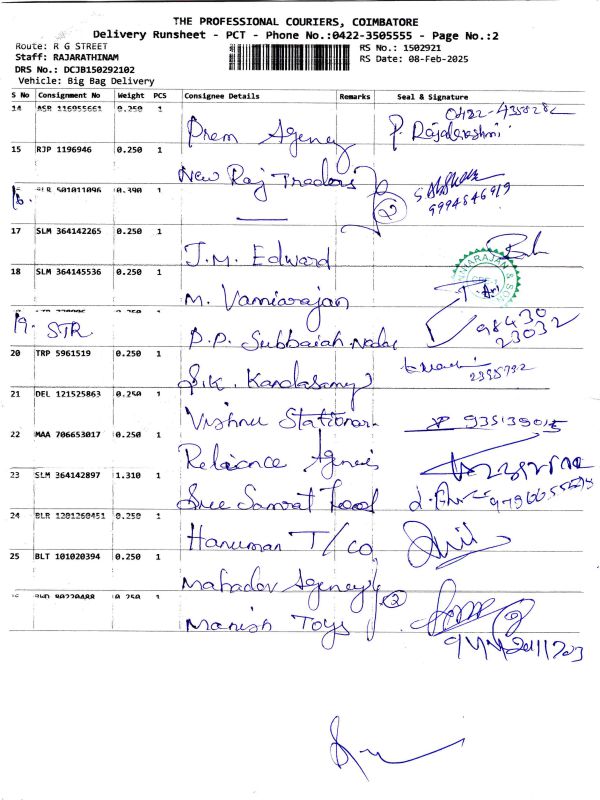 THE PROFESSIONAL COURIERS, COIMBATORE
Delivery Runsheet - PCT - Phone No.:0422-3505555 - Page No.:2
Route: R G STREET
Staff: RAJARATHINAM
DRS No.: DCJB150292102
Vehicle: Big Bag Delivery
RS No.: 1502921
RS Date: 08-Feb-2025
S No Consignment No Weight PCS Consignee Details Remarks Seal & Signature
14 ASR 116955661 0.250 1 Prem Agency P. Rajalakshmi
15 RJP 1196946 0.250 1 New Raj Traders
16. BLR 501011096 0.390 1 2 9994846919
17 SLM 364142265 0.250 1 J.M. Edward
18 SLM 364145536 0.250 1 M. Vanniarajan
19. STR P.P. Subbaiah Nadar 98430 23032
20 TRP 5961519 0.250 1 S.K. Kandasamy
21 DEL 121525863 0.250 1 Vishnu Stationar
22 MAA 706653017 0.250 1 Reliance Agencis
23 SLM 364142897 1.310 1 Sree Samrat Food
24 BLR 1201260451 0.250 1 Hanuman T/Co
25 BLT 101020394 0.250 1 Mahadev Agencys
0.250 1 Manish Toys 2